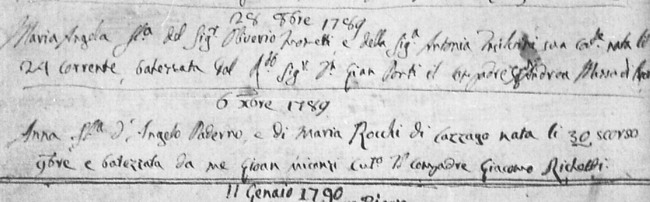 28 9bre 1789
Maria Angela fta del Sigr Oliverio e della Siga Antonia sua nata li
24 corrente, batezzata dal Rdo Sigr Dn Gian Conti il compadre Andrea Massadi
6 Xbre 1789
Anna fta d'Angelo Paderno, e di Maria Rocchi di Cazzago nata li 30 scorso
9bre e batezzata da me Gioan Vicenzi Cuto Il compadre Giacomo Richeldi.
11 Genaio 1790